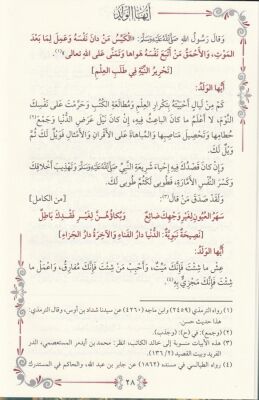 أيها الولد
وقال رسول الله ﷺ: «الكَيِّسُ مَنْ دانَ نَفْسَهُ وَعَمِلَ لِمَا بَعْدَ
المَوْتِ، وَالأَحْمَقُ مَنْ أَتْبَعَ نَفْسَهُ هَواها وَتَمَنَّى عَلَى اللهِ تعالى»(١).
[تَحْرِيرُ النِّيَّةِ فِي طَلَبِ العِلْمِ]
أيها الولدُ:
كَمْ مِنْ لَيالٍ أَحْيَيْتَهَا بِتَكْرارِ العِلْمِ وَمُطَالَعَةِ الكُتُبِ وَحَرَّمْتَ عَلَى نَفْسِكَ
النَّوْمَ، لا أَعْلَمُ ما كانَ الباعِثُ فِيهِ، إِنْ كانَ نَيْلَ عَرَضِ الدُّنْيا وَجَمْعَ(٢)
حُطَامِها وَتَحْصِيلَ مَناصِبِها وَالمُباهاةَ عَلَى الأَقْرانِ وَالأَمْثالِ فَوَيْلٌ لَكَ ثُمَّ
وَيْلٌ لَكَ.
وَإِنْ كانَ قَصْدُكَ فِيهِ إِحْياءَ شَرِيعَةِ النَّبِيِّ ﷺ وَتَهْذِيبَ أَخْلاقِكَ
وَكَسْرَ النَّفْسِ الأَمَّارَةِ، فَطُوبَى لَكَ ثُمَّ طُوبَى لَكَ.
وَلَقَدْ صَدَقَ مَنْ قالَ(٣): [من الكامل]
سَهَرُ العُيُونِ لِغَيْرِ وَجْهِكَ ضائِعُ وَبُكاؤُهُنَّ لِغَيْرِ فَقْدِكَ باطِلُ
[نَصِيحَةٌ نَبَوِيَّةٌ: الدُّنْيا دارُ الفَناءِ وَالآخِرَةُ دارُ الجَزاءِ]
أيها الولدُ:
عِشْ ما شِئْتَ فَإِنَّكَ مَيِّتٌ، وَأَحْبِبْ مَنْ شِئْتَ فَإِنَّكَ مُفارِقُهُ، وَاعْمَلْ ما
شِئْتَ فَإِنَّكَ مَجْزِيٌّ بِهِ(٤).
(١) رواه الترمذي (٢٤٥٩) وابن ماجه (٤٢٦٠) عن سيدنا شداد بن أوس، وقال الترمذي:
هذا حديث حسن.
(٢) (وجمع): في (ح): (وجذب).
(٣) هذه الأبيات منسوبة إلى خالد الكاتب، انظر: محمد بن أيدمر المستعصمي، الدر
الفريد وبيت القصيد (١٣٦/٢).
(٤) رواه الطيالسي في مسنده (١٨٦٢) عن جابر بن عبد الله، والحاكم في المستدرك
٢٨